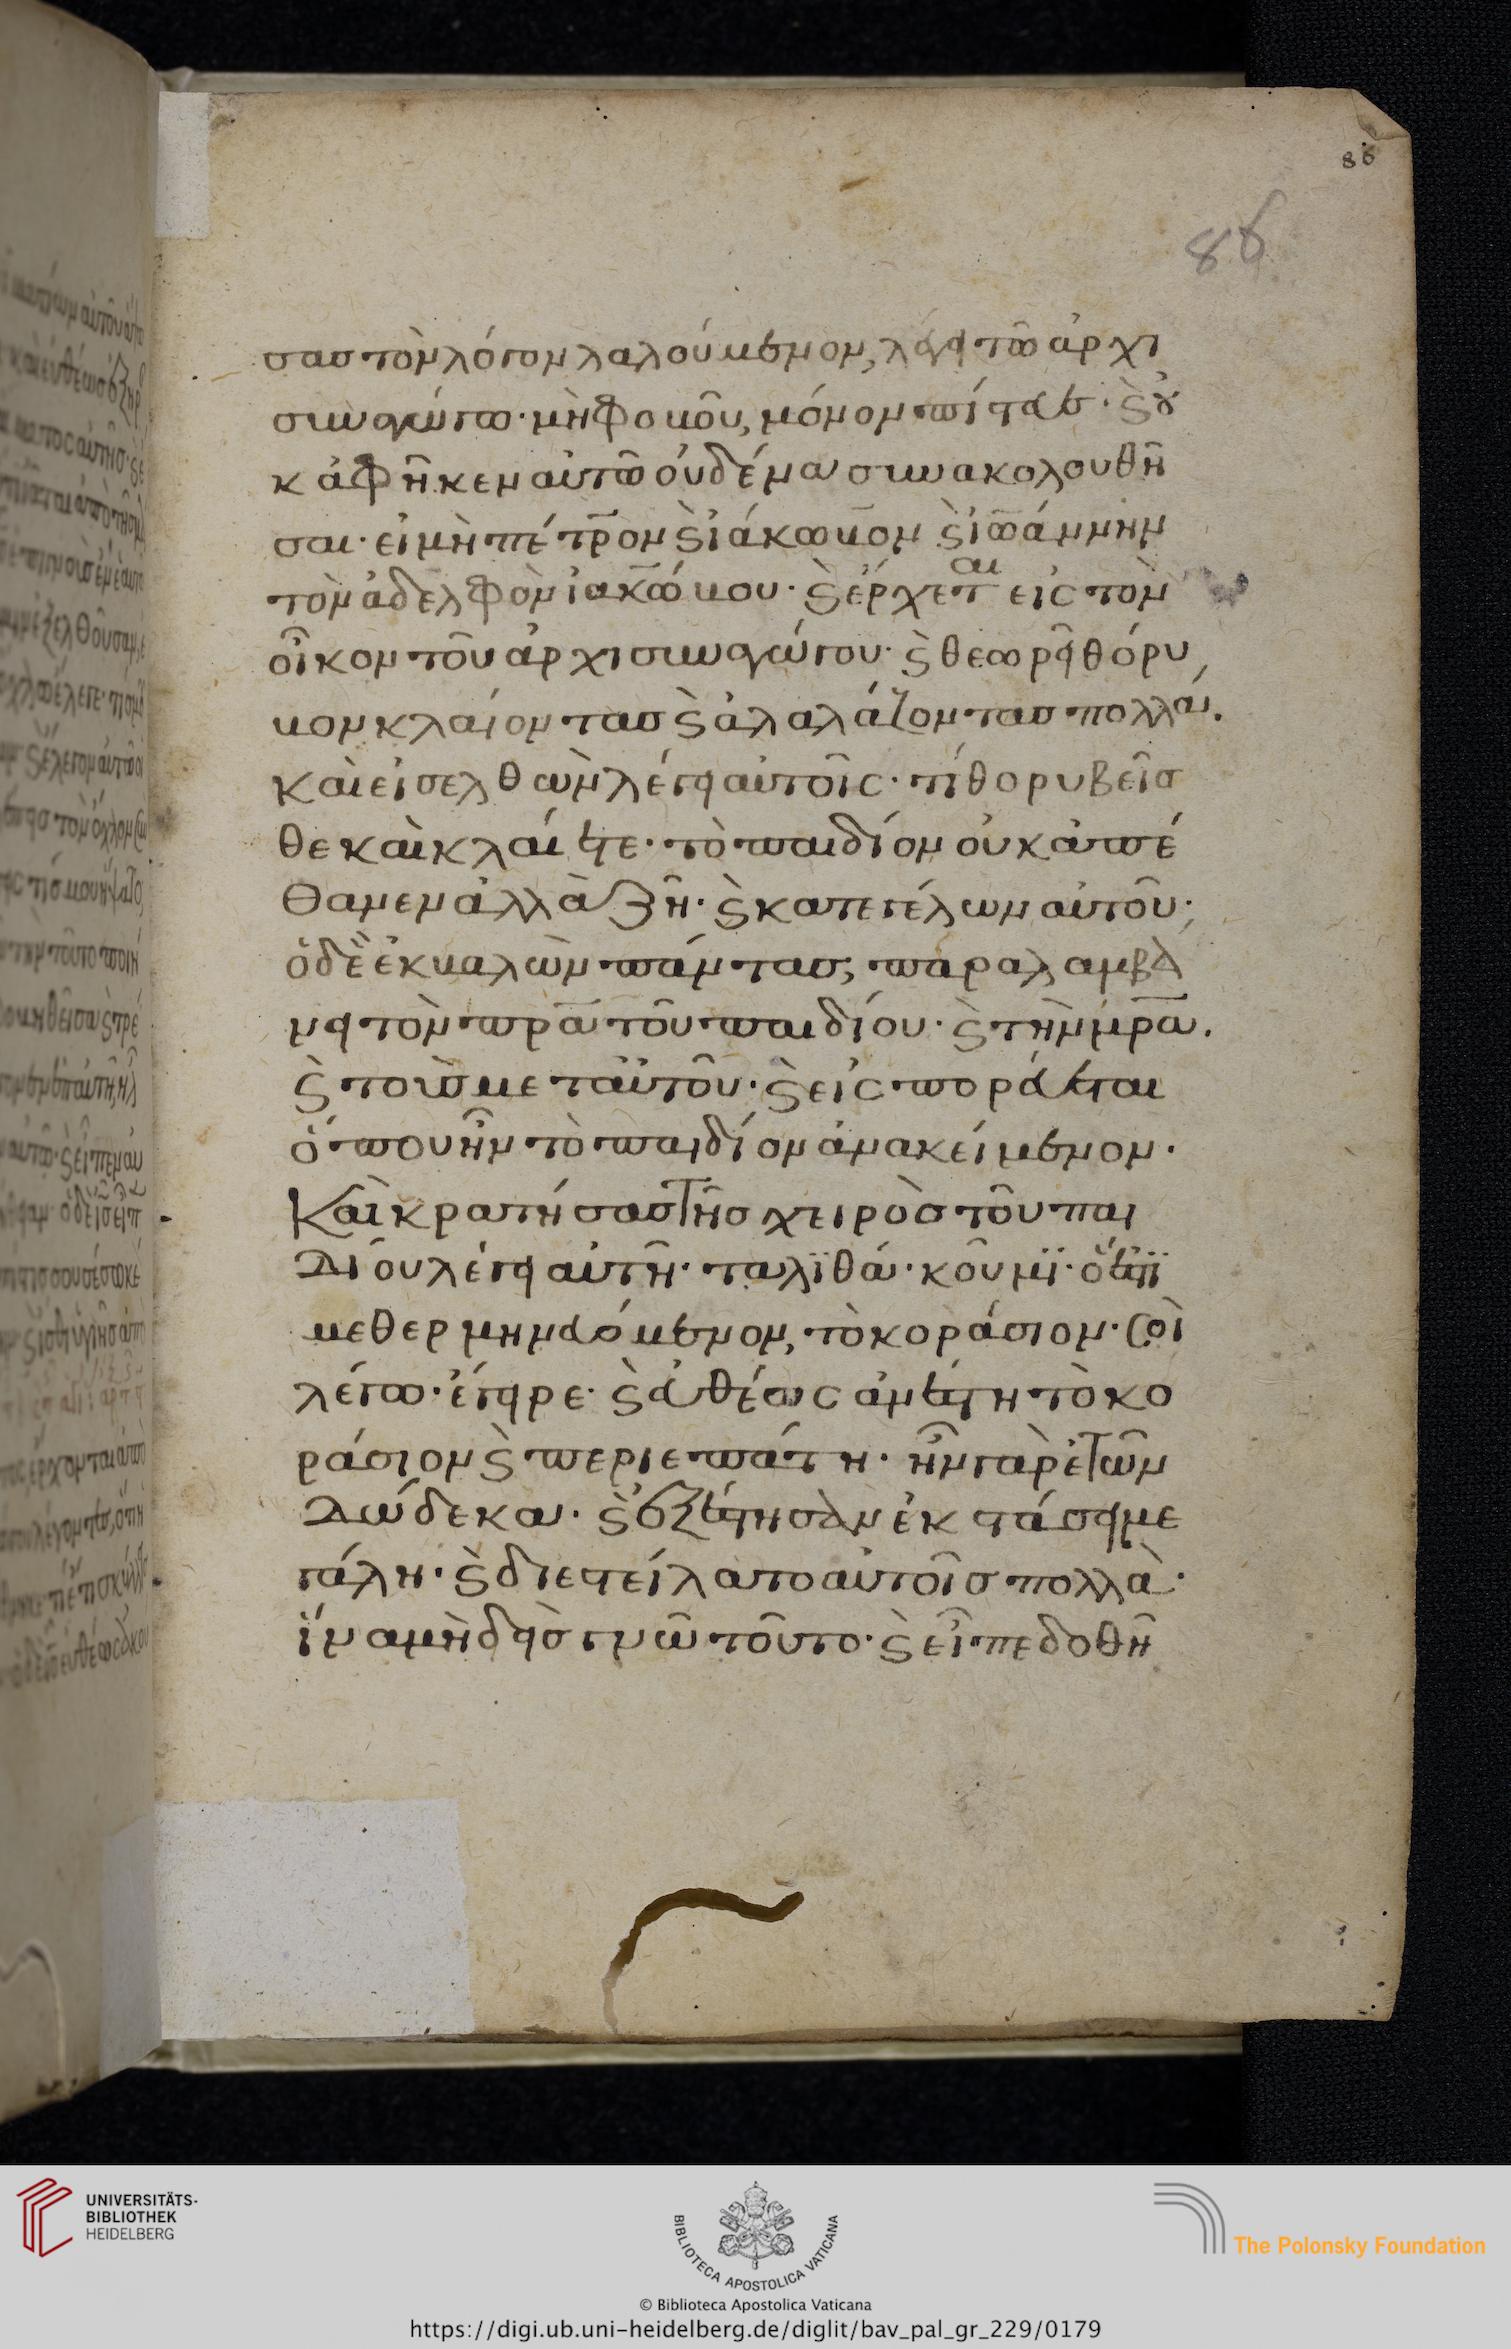 86
86
σας τὸν λόγον λαλούμενον, λέγει τῶ ἀρχι
συναγώγω· μὴ φοβοῦ, μόνον πίστευε· καὶ οὐ
κ ἀφῆκεν αὐτῶ οὐδένα συνακολουθῆ
σαι· εἰ μὴ πέτρον καὶ ἰάκωβον καὶ ἰωάννην
τὸν ἀδελφὸν ἰακώβου· καὶ ἔρχεται εἰς τὸν
οἶκον τοῦ ἀρχισυναγώγου· καὶ θεωρεῖ θόρυ
βον κλαίοντας καὶ ἀλαλάζοντας πολλά.
καὶ εἰσελθὼν λέγει αὐτοῖς· τί θορυβεῖσ
θε καὶ κλαίετε· τὸ παιδίον οὐκ ἀπέ
θανεν ἀλλὰ ζῆ· καὶ κατεγέλων αὐτοῦ·
ὁ δὲ ἐκβαλὼν πάντας, παραλαμβά
νει τὸν πρα τοῦ παιδίου· καὶ τὴν μρα.
καὶ τοὺς μετ αὐτοῦ· καὶ εἰσπορεύεται
ὅπου ἦν τὸ παιδίον ἀνακείμενον.
Καὶ κρατήσας τῆς χειρὸς τοῦ παι
δίου λέγει αὐτῆ· ταλϊθά· κοῦμϊ· ὅ ἐστϊ
μεθερμηνευόμενον, τὸ κοράσιον· σοὶ
λέγω· ἔγειρε· καὶ εὐθέως ἀνέστη τὸ κο
ράσιον καὶ περιεπάτη· ἦν γὰρ ἐτῶν
δώδεκα· καὶ ἐξέστησαν ἐκστάσει με
γάλη· καὶ διεστείλατο αὐτοῖς πολλὰ·
ἵνα μὴδεὶς γνῶ τοῦτο· καὶ εἶπε δοθῆ
UNIVERSITÄTS-
BIBLIOTHEK
HEIDELBERG
BIBLIOTECA APOSTOLICA VATICANA
The Polonsky Foundation
© Biblioteca Apostolica Vaticana
https://digi.ub.uni-heidelberg.de/diglit/bav_pal_gr_229/0179